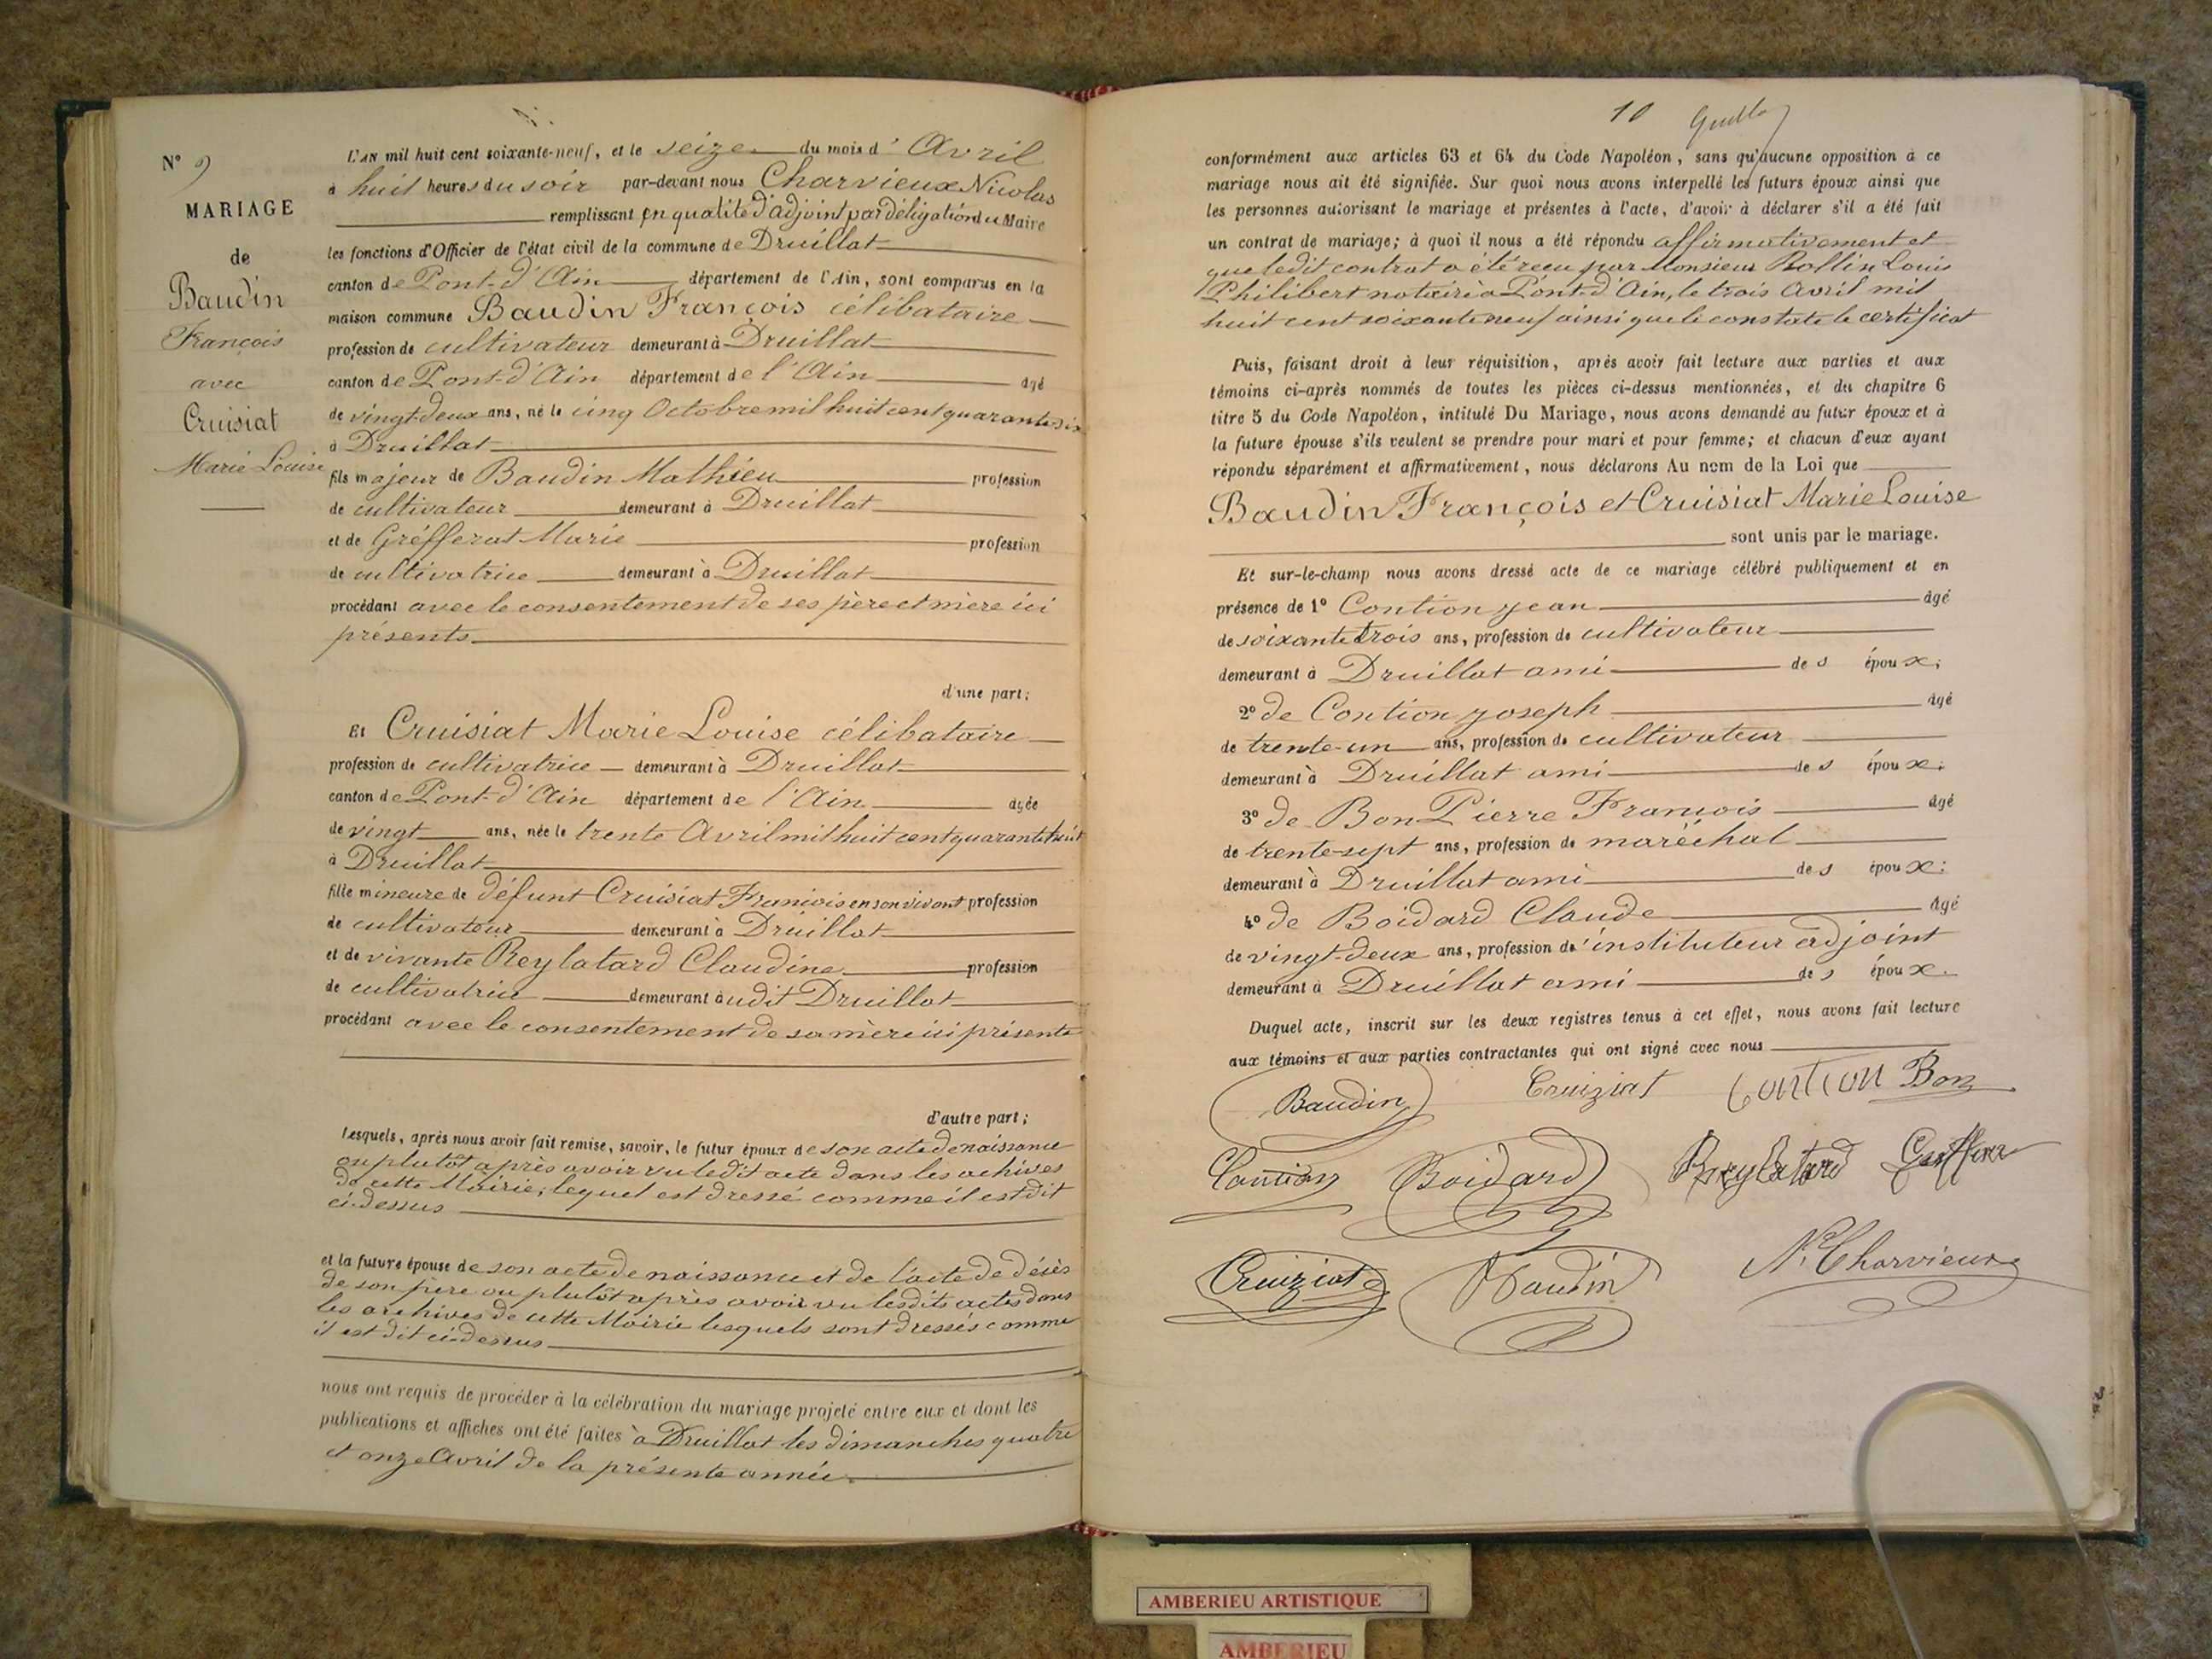 N° 9
MARIAGE
de
Baudin
François
avec
Cruisiat
Marie Louise
L'AN mil huit cent soixante-neuf, et le seize du mois d'Avril
à huit heures du soir par-devant nous Charvieux Nicolas
remplissant en qualité d'adjoint par déligation du Maire
les fonctions d'Officier de l'état civil de la commune de Druillat
canton de Pont-d'Ain département de l'Ain, sont comparus en la
maison commune Baudin François célibataire
profession de cultivateur demeurant à Druillat
canton de Pont-d'Ain département de l'Ain âgé
de vingt-deux ans, né le cinq Octobre mil huit cent quarante-six
à Druillat
fils majeur de Baudin Mathieu profession
de cultivateur demeurant à Druillat
et de Gréfferat Marie profession
de cultivatrice demeurant à Druillat
procédant avec le consentement de ses père et mère ici
présents
d'une part;
Et Cruisiat Marie Louise célibataire
profession de cultivatrice demeurant à Druillat
canton de Pont-d'Ain département de l'Ain âgée
de vingt ans, née le trente Avril mil huit cent quarante huit
à Druillat
fille mineure de défunt Cruisiat François en son vivant profession
de cultivateur demeurant à Druillat
et de vivante Reylatard Claudine profession
de cultivatrice demeurant audit Druillat
procédant avec le consentement de sa mère ici présente
d'autre part;
Lesquels, après nous avoir fait remise, savoir, le futur époux de son acte de naissance
ou plutôt après avoir vu ledit acte dans les achives
de cette Mairie, lequel est dressé comme il est dit
ci-dessus
et la future épouse de son acte de naissance et de l'acte de décès
de son père ou plutôt après avoir vu lesdits actes dans
les archives de cette Mairie lesquels sont dressés comme
il est dit ci-dessus
nous ont requis de procéder à la célébration du mariage projeté entre eux et dont les
publications et affiches ont été faites à Druillat les dimanches quatre
et onze Avril de la présente année.
10
conformément aux articles 63 et 64 du Code Napoléon, sans qu'aucune opposition à ce
mariage nous ait été signifiée. Sur quoi nous avons interpellé les futurs époux ainsi que
les personnes autorisant le mariage et présentes à l'acte, d'avoir à déclarer s'il a été fait
un contrat de mariage; à quoi il nous a été répondu affirmativement et
que ledit contrat a été reçu par Monsieur Rollin Louis
Philibert notaire à Pont-d'Ain, le trois Avril mil
huit cent soixante neuf ainsi que le constate le certificat
Puis, faisant droit à leur réquisition, après avoir fait lecture aux parties et aux
témoins ci-après nommés de toutes les pièces ci-dessus mentionnées, et du chapitre 6
titre 5 du Code Napoléon, intitulé Du Mariage, nous avons demandé au futur époux et à
la future épouse s'ils veulent se prendre pour mari et pour femme; et chacun d'eux ayant
répondu séparément et affirmativement, nous déclarons Au nom de la Loi que
Baudin François et Cruisiat Marie Louise
sont unis par le mariage.
Et sur-le-champ nous avons dressé acte de ce mariage célébré publiquement et en
présence de 1° Contion Jean âgé
de soixante trois ans, profession de cultivateur
demeurant à Druillat ami des époux;
2° de Contion Joseph âgé
de trente-un ans, profession de cultivateur
demeurant à Druillat ami des époux;
3° de Bon Pierre François âgé
de trente-sept ans, profession de maréchal
demeurant à Druillat ami des époux:
4° de Boidard Claude âgé
de vingt-deux ans, profession d'instituteur adjoint
demeurant à Druillat ami des époux.
Duquel acte, inscrit sur les deux registres tenus à cet effet, nous avons fait lecture
aux témoins et aux parties contractantes qui ont signé avec nous
Baudin Cruiziat Contion Bon
Contion Boidard Reylatard
Cruiziat Baudin N. Charvieux
AMBERIEU ARTISTIQUE
AMBERIEU